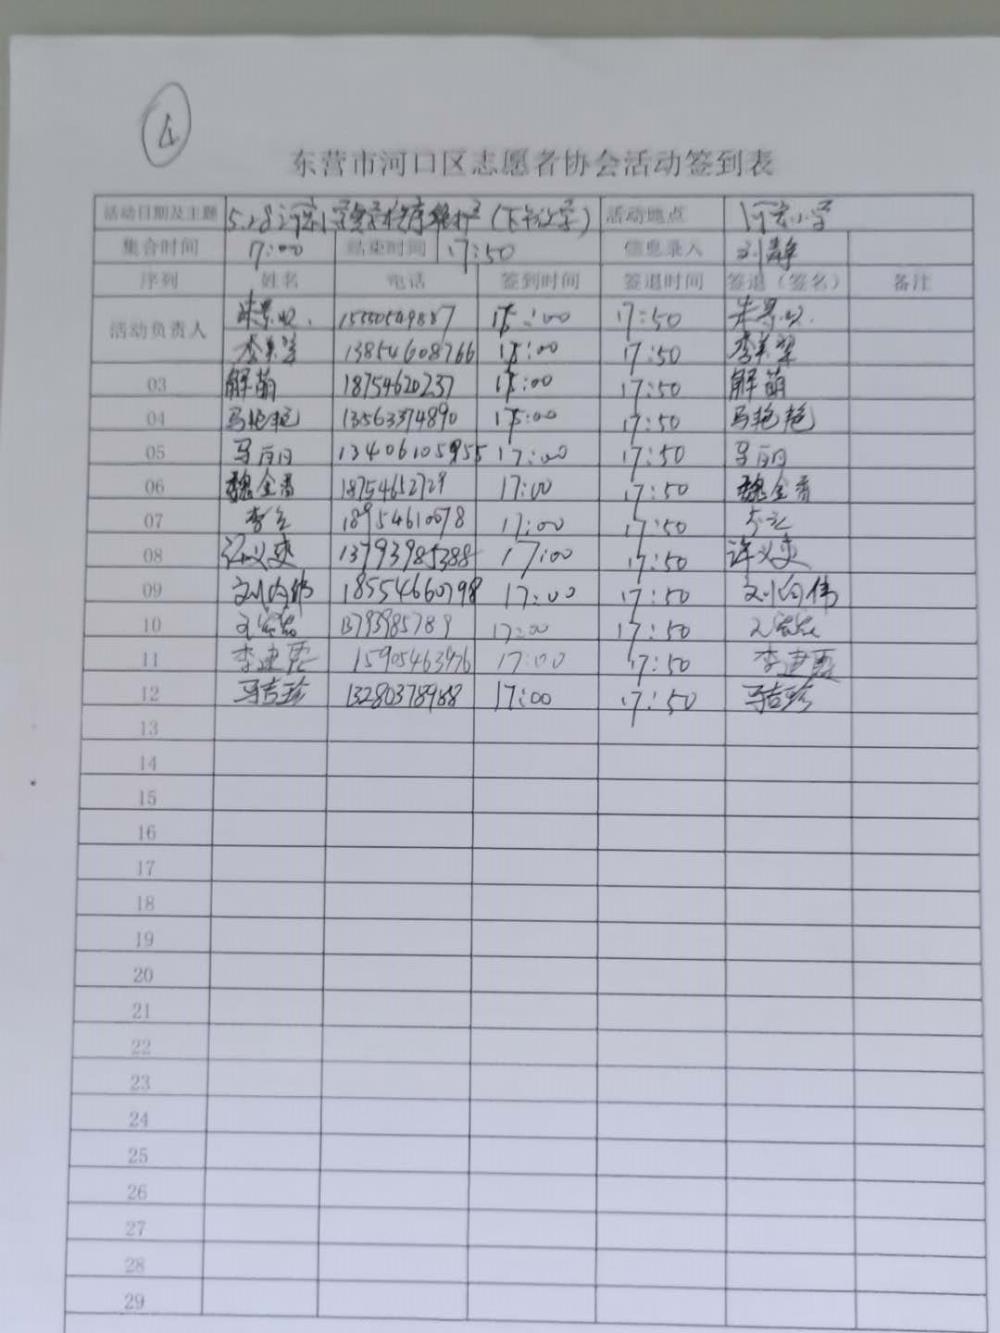 4
东营市河口区志愿者协会活动签到表
活动日期及主题 5.28 (下午放学) 活动地点 河安小学
集合时间 17:00 结束时间 17:50 信息录入 刘静
序列 姓名 电话 签到时间 签退时间 签退（签名） 备注
活动负责人 17:00 17:50
李美翠 13854608766 17:00 17:50 李美翠
03 解萌 18754620237 17:00 17:50 解萌
04 马艳艳 13563374890 17:00 17:50 马艳艳
05 马丽丽 13406105955 17:00 17:50 马丽丽
06 魏金香 18754652729 17:00 17:50 魏金香
07 李 18954610078 17:00 17:50 李
08 许义爽 13793985388 17:00 17:50 许义爽
09 刘向伟 18554660798 17:00 17:50 刘向伟
10 1379985789 17:00 17:50
11 李建霞 15905463976 17:00 17:50 李建霞
12 马吉珍 13280378988 17:00 17:50 马吉珍
13
14
15
16
17
18
19
20
21
22
23
24
25
26
27
28
29